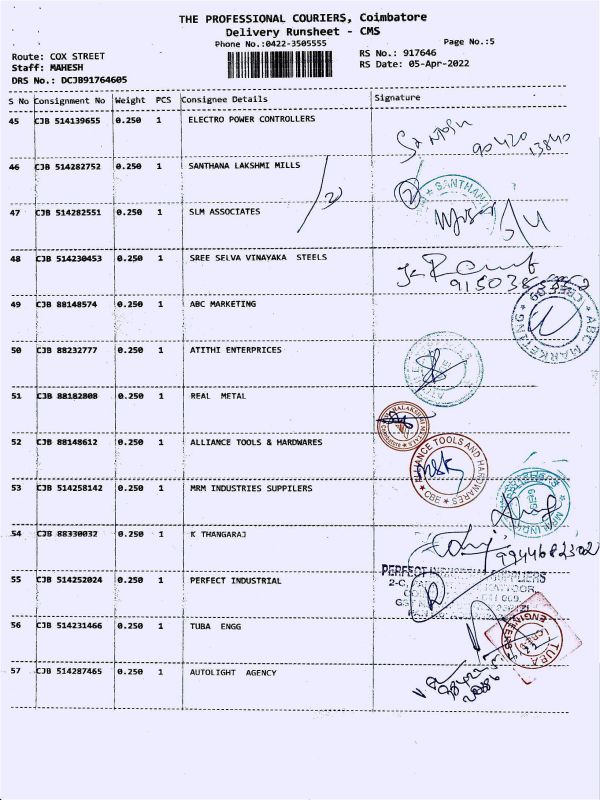 THE PROFESSIONAL COURIERS, Coimbatore
Delivery Runsheet - CMS
Phone No.:0422-3505555
Page No.:5
Route: COX STREET
RS No.: 917646
Staff: MAHESH
RS Date: 05-Apr-2022
DRS No.: DCJB91764605
S No Consignment No Weight PCS Consignee Details Signature
45 CJB 514139655 0.250 1 ELECTRO POWER CONTROLLERS
90420 13840
46 CJB 514282752 0.250 1 SANTHANA LAKSHMI MILLS
2
47 CJB 514282551 0.250 1 SLM ASSOCIATES
48 CJB 514230453 0.250 1 SREE SELVA VINAYAKA STEELS
49 CJB 88148574 0.250 1 ABC MARKETING
ABC MARKETING
50 CJB 88232777 0.250 1 ATITHI ENTERPRICES
51 CJB 88182808 0.250 1 REAL METAL
52 CJB 88148612 0.250 1 ALLIANCE TOOLS & HARDWARES
ALLIANCE TOOLS AND HARDWARES
CBE
53 CJB 514258142 0.250 1 MRM INDUSTRIES SUPPILERS
54 CJB 88330032 0.250 1 K THANGARAJ
9944682302
55 CJB 514252024 0.250 1 PERFECT INDUSTRIAL
PERFECT SUPPLIERS
56 CJB 514231466 0.250 1 TUBA ENGG
TUBA ENGINEERS
57 CJB 514287465 0.250 1 AUTOLIGHT AGENCY